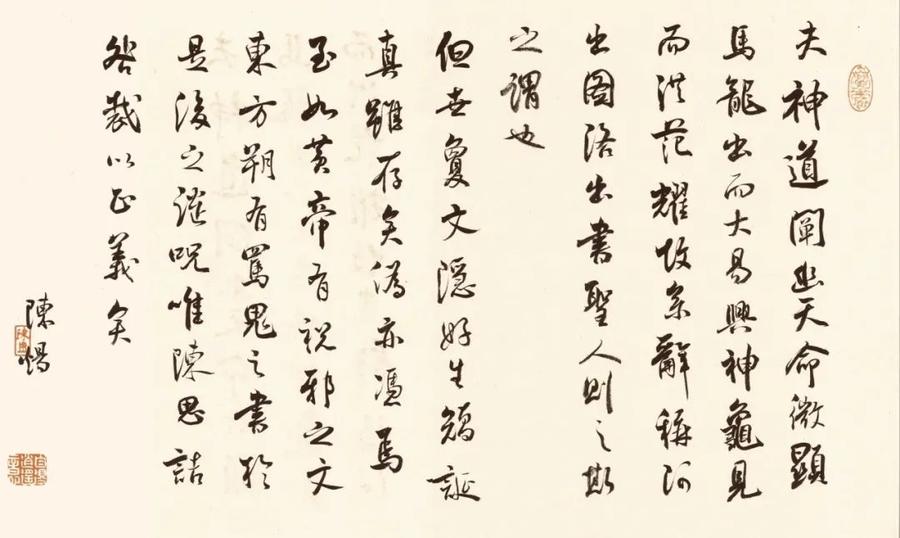 夫神道闡幽天命微顯
馬龍出而大易興神龜見
而洪范耀故系辭稱河
出圖洛出書聖人則之斯
之謂也
但世夐文隱好生矯誕
真雖存矣偽亦憑焉
至如黃帝有祝邪之文
東方朔有罵鬼之書於
是後之譴呪唯陳思詰
咎裁以正義矣
陳